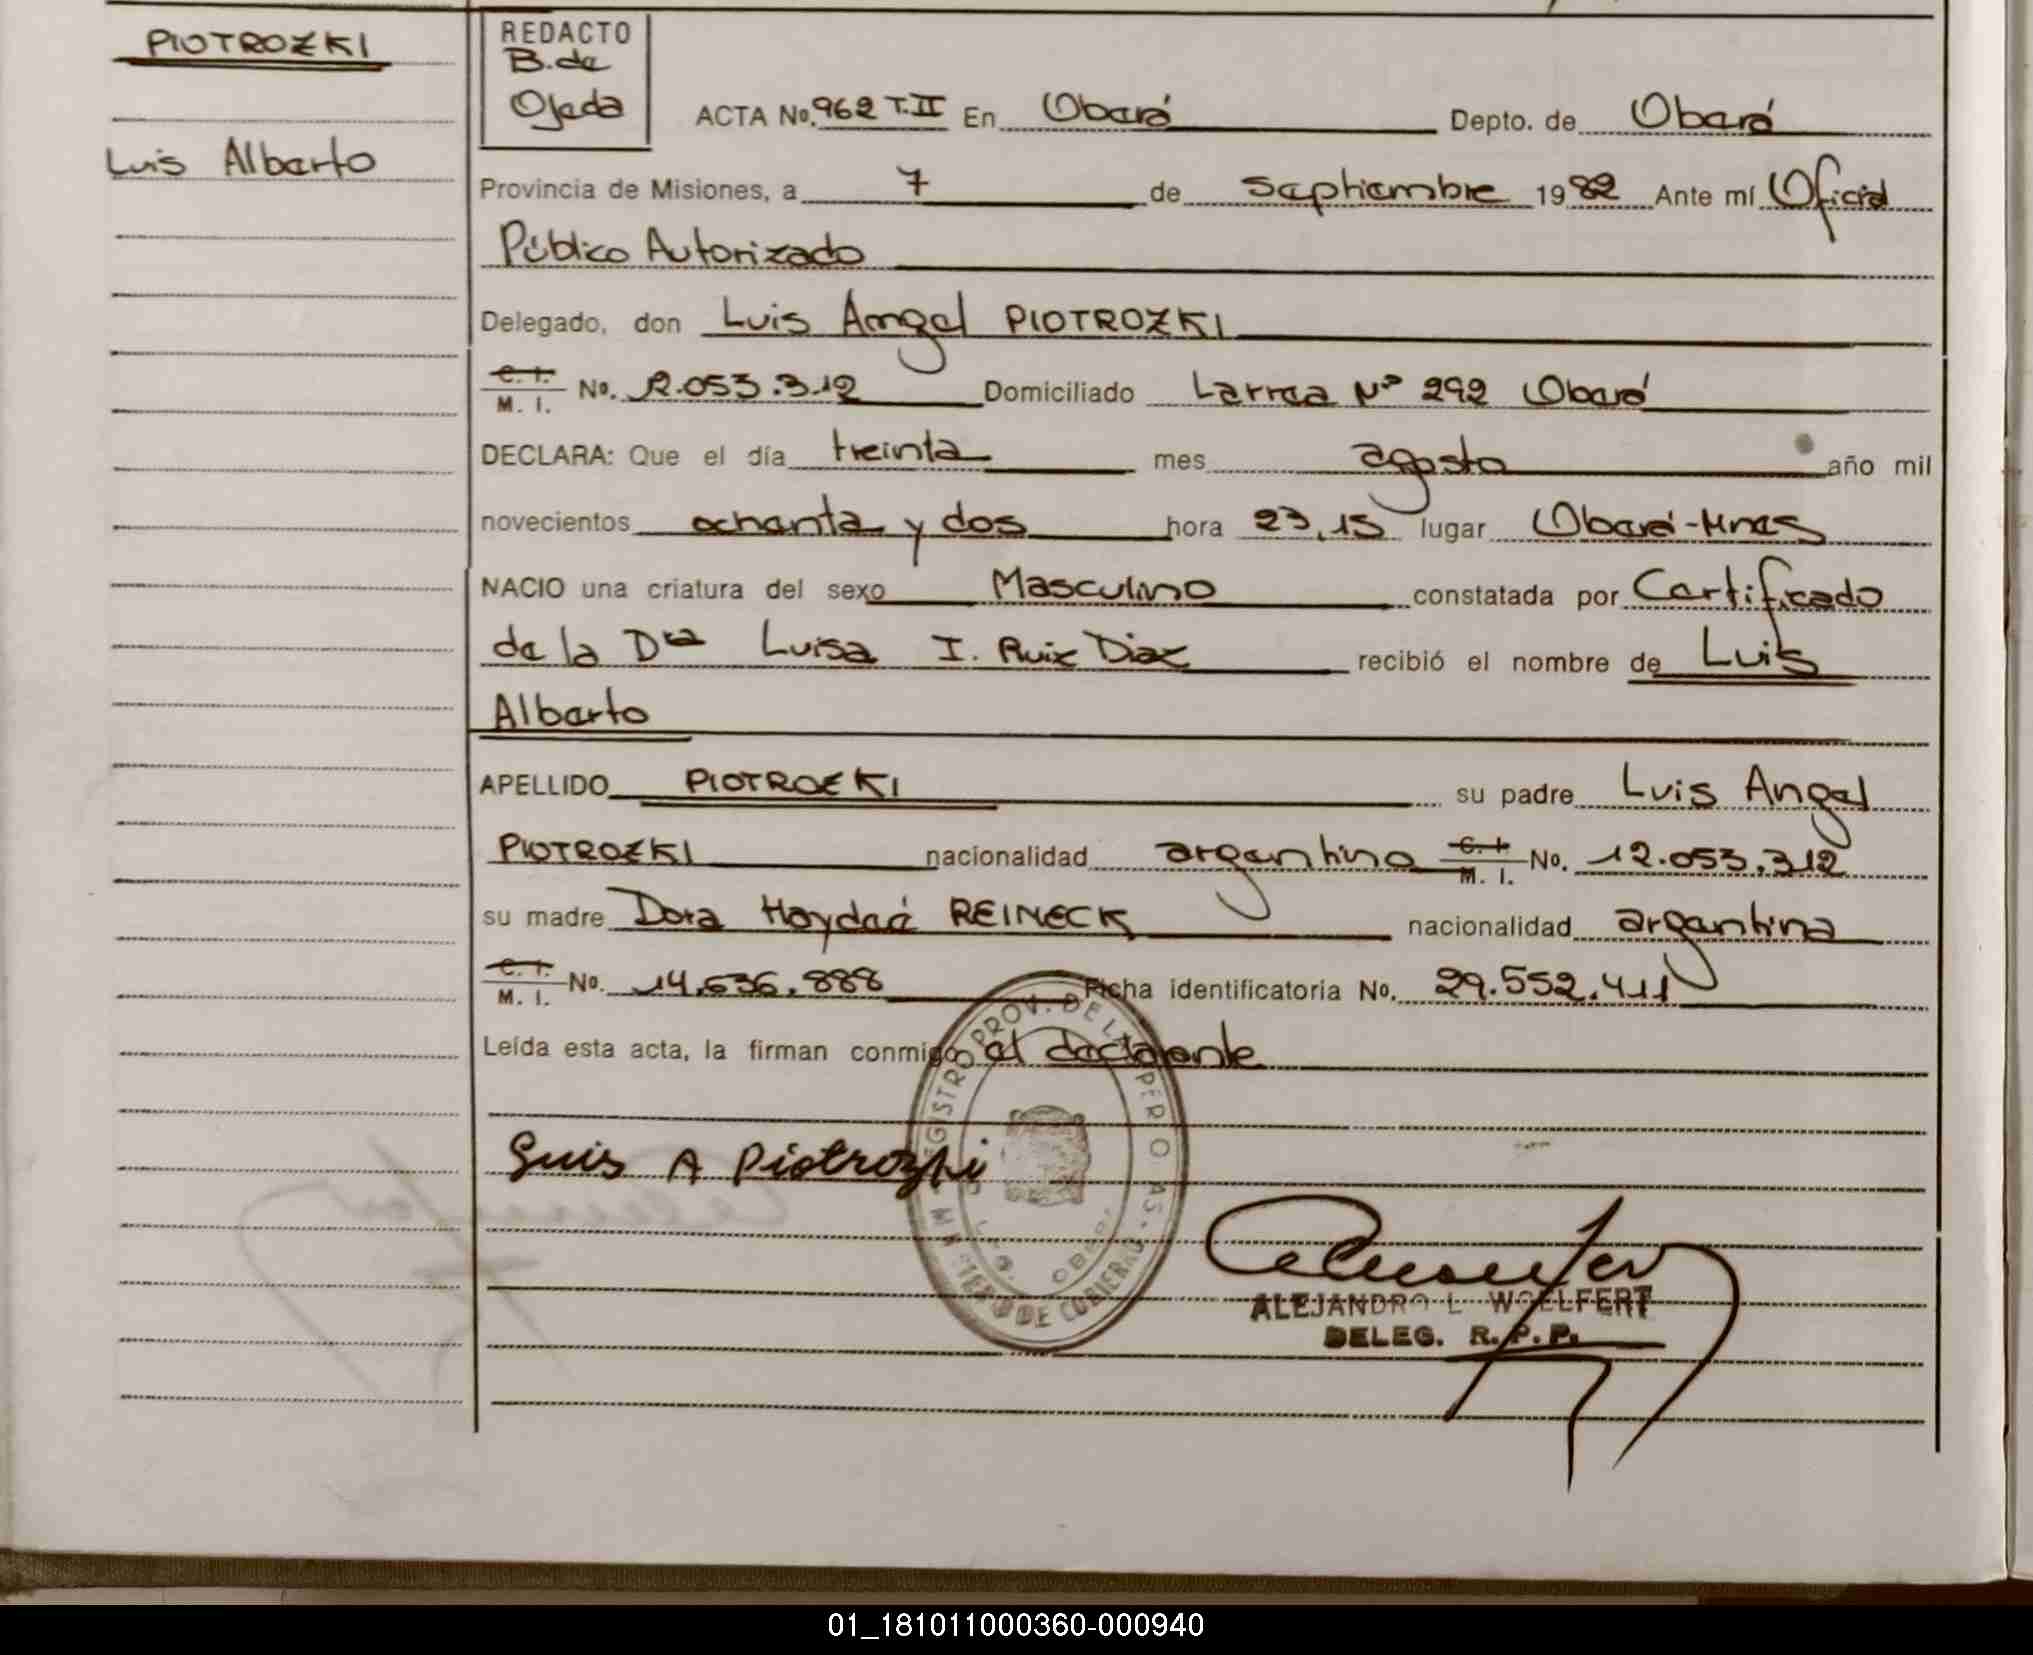 PIOTROZKI
Luis Alberto
REDACTO
B. de
Ojeda
ACTA No. 962 T.II En Oberá Depto. de Oberá
Provincia de Misiones, a 7 de Septiembre 1982 Ante mí Oficial
Público Autorizado
Delegado, don Luis Angel PIOTROZKI
C. I. M. I. No. 12.053.312 Domiciliado Larrea Nº 292 Oberá
DECLARA: Que el día treinta mes agosto año mil
novecientos ochenta y dos hora 23,15 lugar Oberá-Mnes
NACIO una criatura del sexo Masculino constatada por Certificado
de la Dra Luisa I. Ruiz Diaz recibió el nombre de Luis
Alberto
APELLIDO PIOTROZKI su padre Luis Angel
PIOTROZKI nacionalidad argentino C. I. M. I. No. 12.053.312
su madre Dora Haydeé REINECK nacionalidad argentina
C. I. M. I. No. 14.636.888 Ficha identificatoria No. 29.552.411
Leída esta acta, la firman conmigo el declarante
Luis A Piotrozki
REGISTRO PROV. DE LAS PERSONAS
MINISTERIO DE GOBIERNO
OBERA
ALEJANDRO L. WOELFERT
DELEG. R. P. P.
01_181011000360-000940